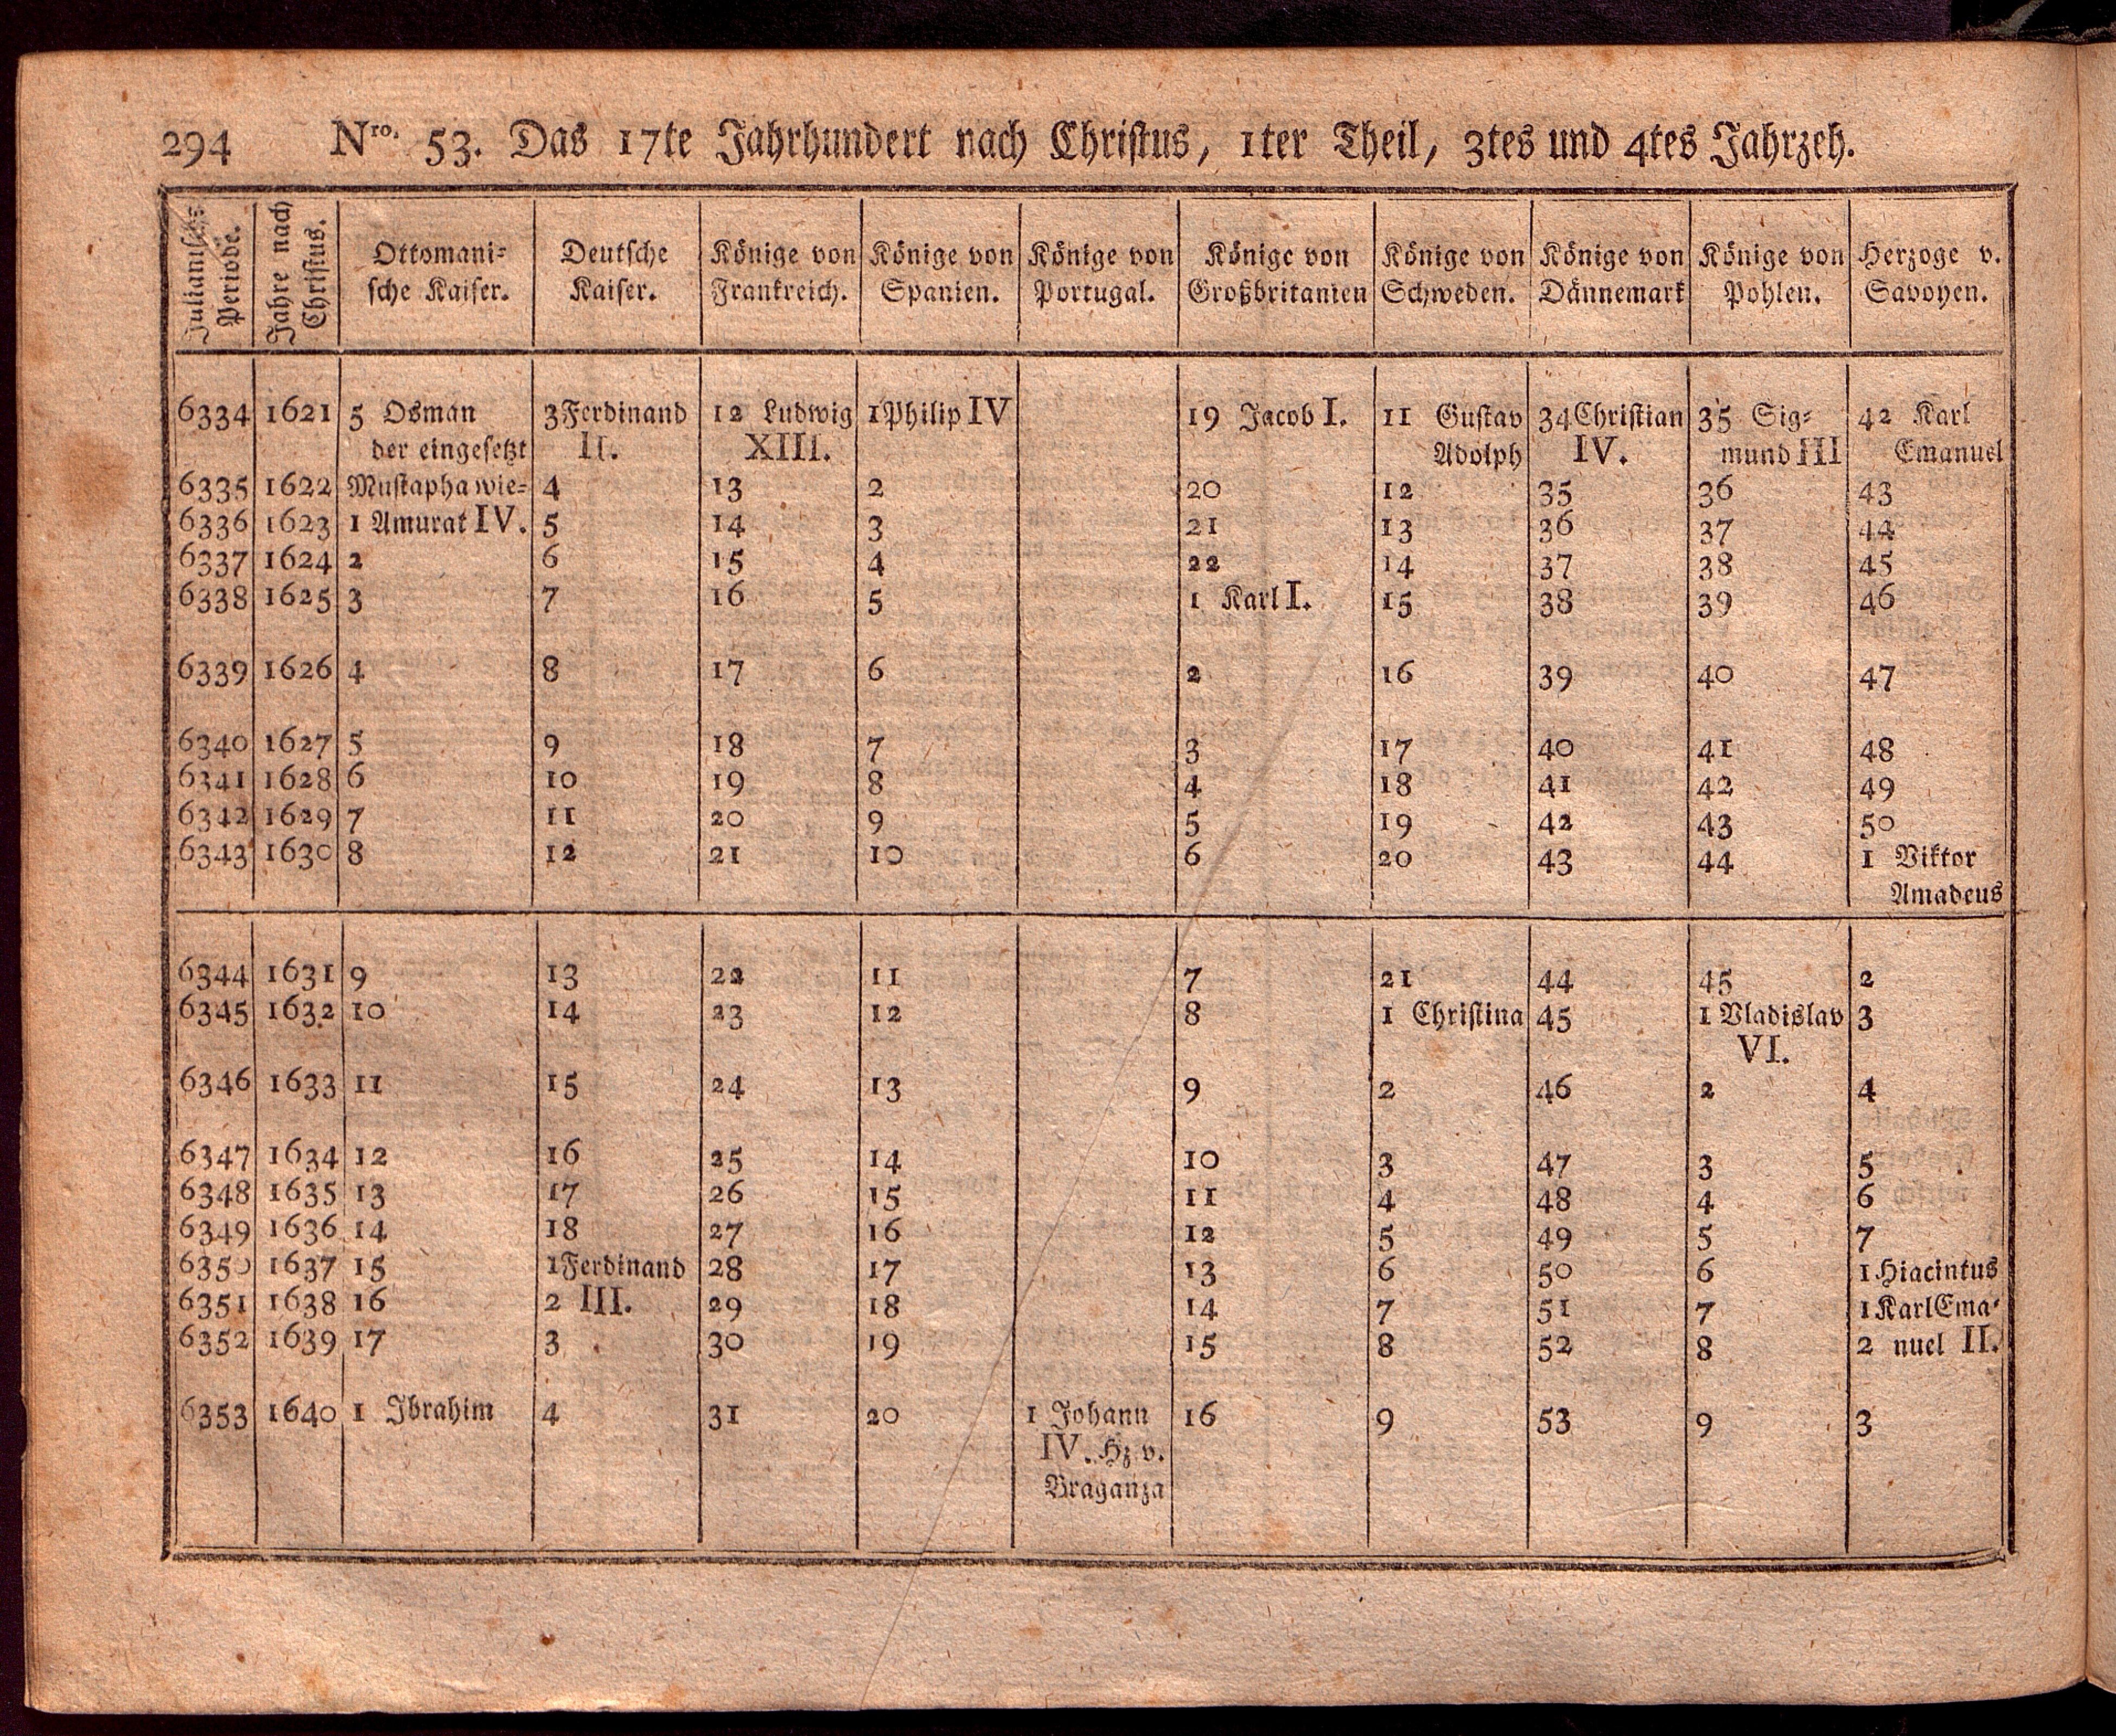 294 Nro. 53. Das 17te Jahrhundert nach Christus, 1ter Theil, 3tes und 4tes Jahrzeh.
Julianische Periode. Jahre nach Christus. Ottomani= Deutsche Könige von Könige von Könige von Könige von Könige von Könige von Könige von Herzoge v.
sche Kaiser. Kaiser. Frankreich. Spanien. Portugal. Großbritanien Schweden. Dännemark Pohlen. Savoyen.
6334 1621 5 Osman 3 Ferdinand 12 Ludwig 1 Philip IV 19 Jacob I. 11 Gustav 34 Christian 35 Sig= 42 Karl
der eingesetzt II. XIII. Adolph IV. mund III Emanuel
6335 1622 Mustapha wie= 4 13 2 20 12 35 36 43
6336 1623 1 Amurat IV. 5 14 3 21 13 36 37 44
6337 1624 2 6 15 4 22 14 37 38 45
6338 1625 3 7 16 5 1 Karl I. 15 38 39 46
6339 1626 4 8 17 6 2 16 39 40 47
6340 1627 5 9 18 7 3 17 40 41 48
6341 1628 6 10 19 8 4 18 41 42 49
6342 1629 7 11 20 9 5 19 42 43 50
6343 1630 8 12 21 10 6 20 43 44 1 Viktor
Amadeus
6344 1631 9 13 22 11 7 21 44 45 2
6345 1632 10 14 23 12 8 1 Christina 45 1 Vladislav 3
VI.
6346 1633 11 15 24 13 9 2 46 2 4
6347 1634 12 16 25 14 10 3 47 3 5
6348 1635 13 17 26 15 11 4 48 4 6
6349 1636 14 18 27 16 12 5 49 5 7
6350 1637 15 1 Ferdinand 28 17 13 6 50 6 1 Hiacintus
6351 1638 16 2 III. 29 18 14 7 51 7 1 Karl Ema=
6352 1639 17 3 30 19 15 8 52 8 2 nuel II.
6353 1640 1 Ibrahim 4 31 20 1 Johann 16 9 53 9 3
IV. Hz v.
Braganza